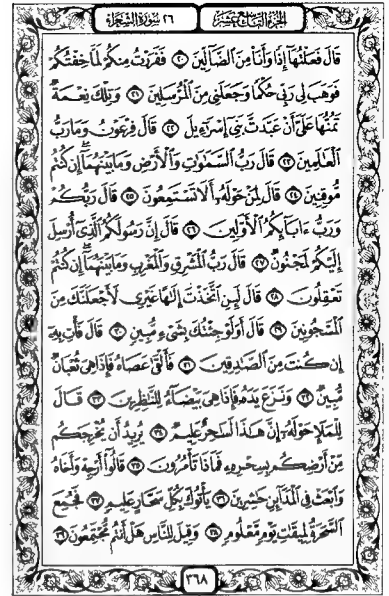 الجزء التاسع عشر ٢٦ سورة الشعراء
قَالَ فَعَلْتُهَا إِذًا وَأَنَا مِنَ الضَّالِّينَ ٢٠ فَفَرَرْتُ مِنكُمْ لَمَّا خِفْتُكُمْ
فَوَهَبَ لِي رَبِّي حُكْمًا وَجَعَلَنِي مِنَ الْمُرْسَلِينَ ٢١ وَتِلْكَ نِعْمَةٌ
تَمُنُّهَا عَلَيَّ أَنْ عَبَّدتَّ بَنِي إِسْرَاءِيلَ ٢٢ قَالَ فِرْعَوْنُ وَمَا رَبُّ
الْعَالَمِينَ ٢٣ قَالَ رَبُّ السَّمَوَاتِ وَالْأَرْضِ وَمَا بَيْنَهُمَا إِن كُنتُم
مُّوقِنِينَ ٢٤ قَالَ لِمَنْ حَوْلَهُ أَلَا تَسْتَمِعُونَ ٢٥ قَالَ رَبُّكُمْ
وَرَبُّ ءَابَآئِكُمُ الْأَوَّلِينَ ٢٦ قَالَ إِنَّ رَسُولَكُمُ الَّذِي أُرْسِلَ
إِلَيْكُمْ لَمَجْنُونٌ ٢٧ قَالَ رَبُّ الْمَشْرِقِ وَالْمَغْرِبِ وَمَا بَيْنَهُمَا إِن كُنتُمْ
تَعْقِلُونَ ٢٨ قَالَ لَئِنِ اتَّخَذْتَ إِلَهًا غَيْرِي لَأَجْعَلَنَّكَ مِنَ
الْمَسْجُونِينَ ٢٩ قَالَ أَوَلَوْ جِئْتُكَ بِشَيْءٍ مُّبِينٍ ٣٠ قَالَ فَأْتِ بِهِ
إِن كُنتَ مِنَ الصَّادِقِينَ ٣١ فَأَلْقَى عَصَاهُ فَإِذَا هِيَ ثُعْبَانٌ
مُّبِينٌ ٣٢ وَنَزَعَ يَدَهُ فَإِذَا هِيَ بَيْضَآءُ لِلنَّاظِرِينَ ٣٣ قَالَ
لِلْمَلَإِ حَوْلَهُ إِنَّ هَذَا لَسَاحِرٌ عَلِيمٌ ٣٤ يُرِيدُ أَن يُخْرِجَكُم
مِّنْ أَرْضِكُم بِسِحْرِهِ فَمَاذَا تَأْمُرُونَ ٣٥ قَالُوا أَرْجِهْ وَأَخَاهُ
وَابْعَثْ فِي الْمَدَآئِنِ حَاشِرِينَ ٣٦ يَأْتُوكَ بِكُلِّ سَحَّارٍ عَلِيمٍ ٣٧ فَجُمِعَ
السَّحَرَةُ لِمِيقَاتِ يَوْمٍ مَّعْلُومٍ ٣٨ وَقِيلَ لِلنَّاسِ هَلْ أَنتُم مُّجْتَمِعُونَ ٣٩
٣٦٨